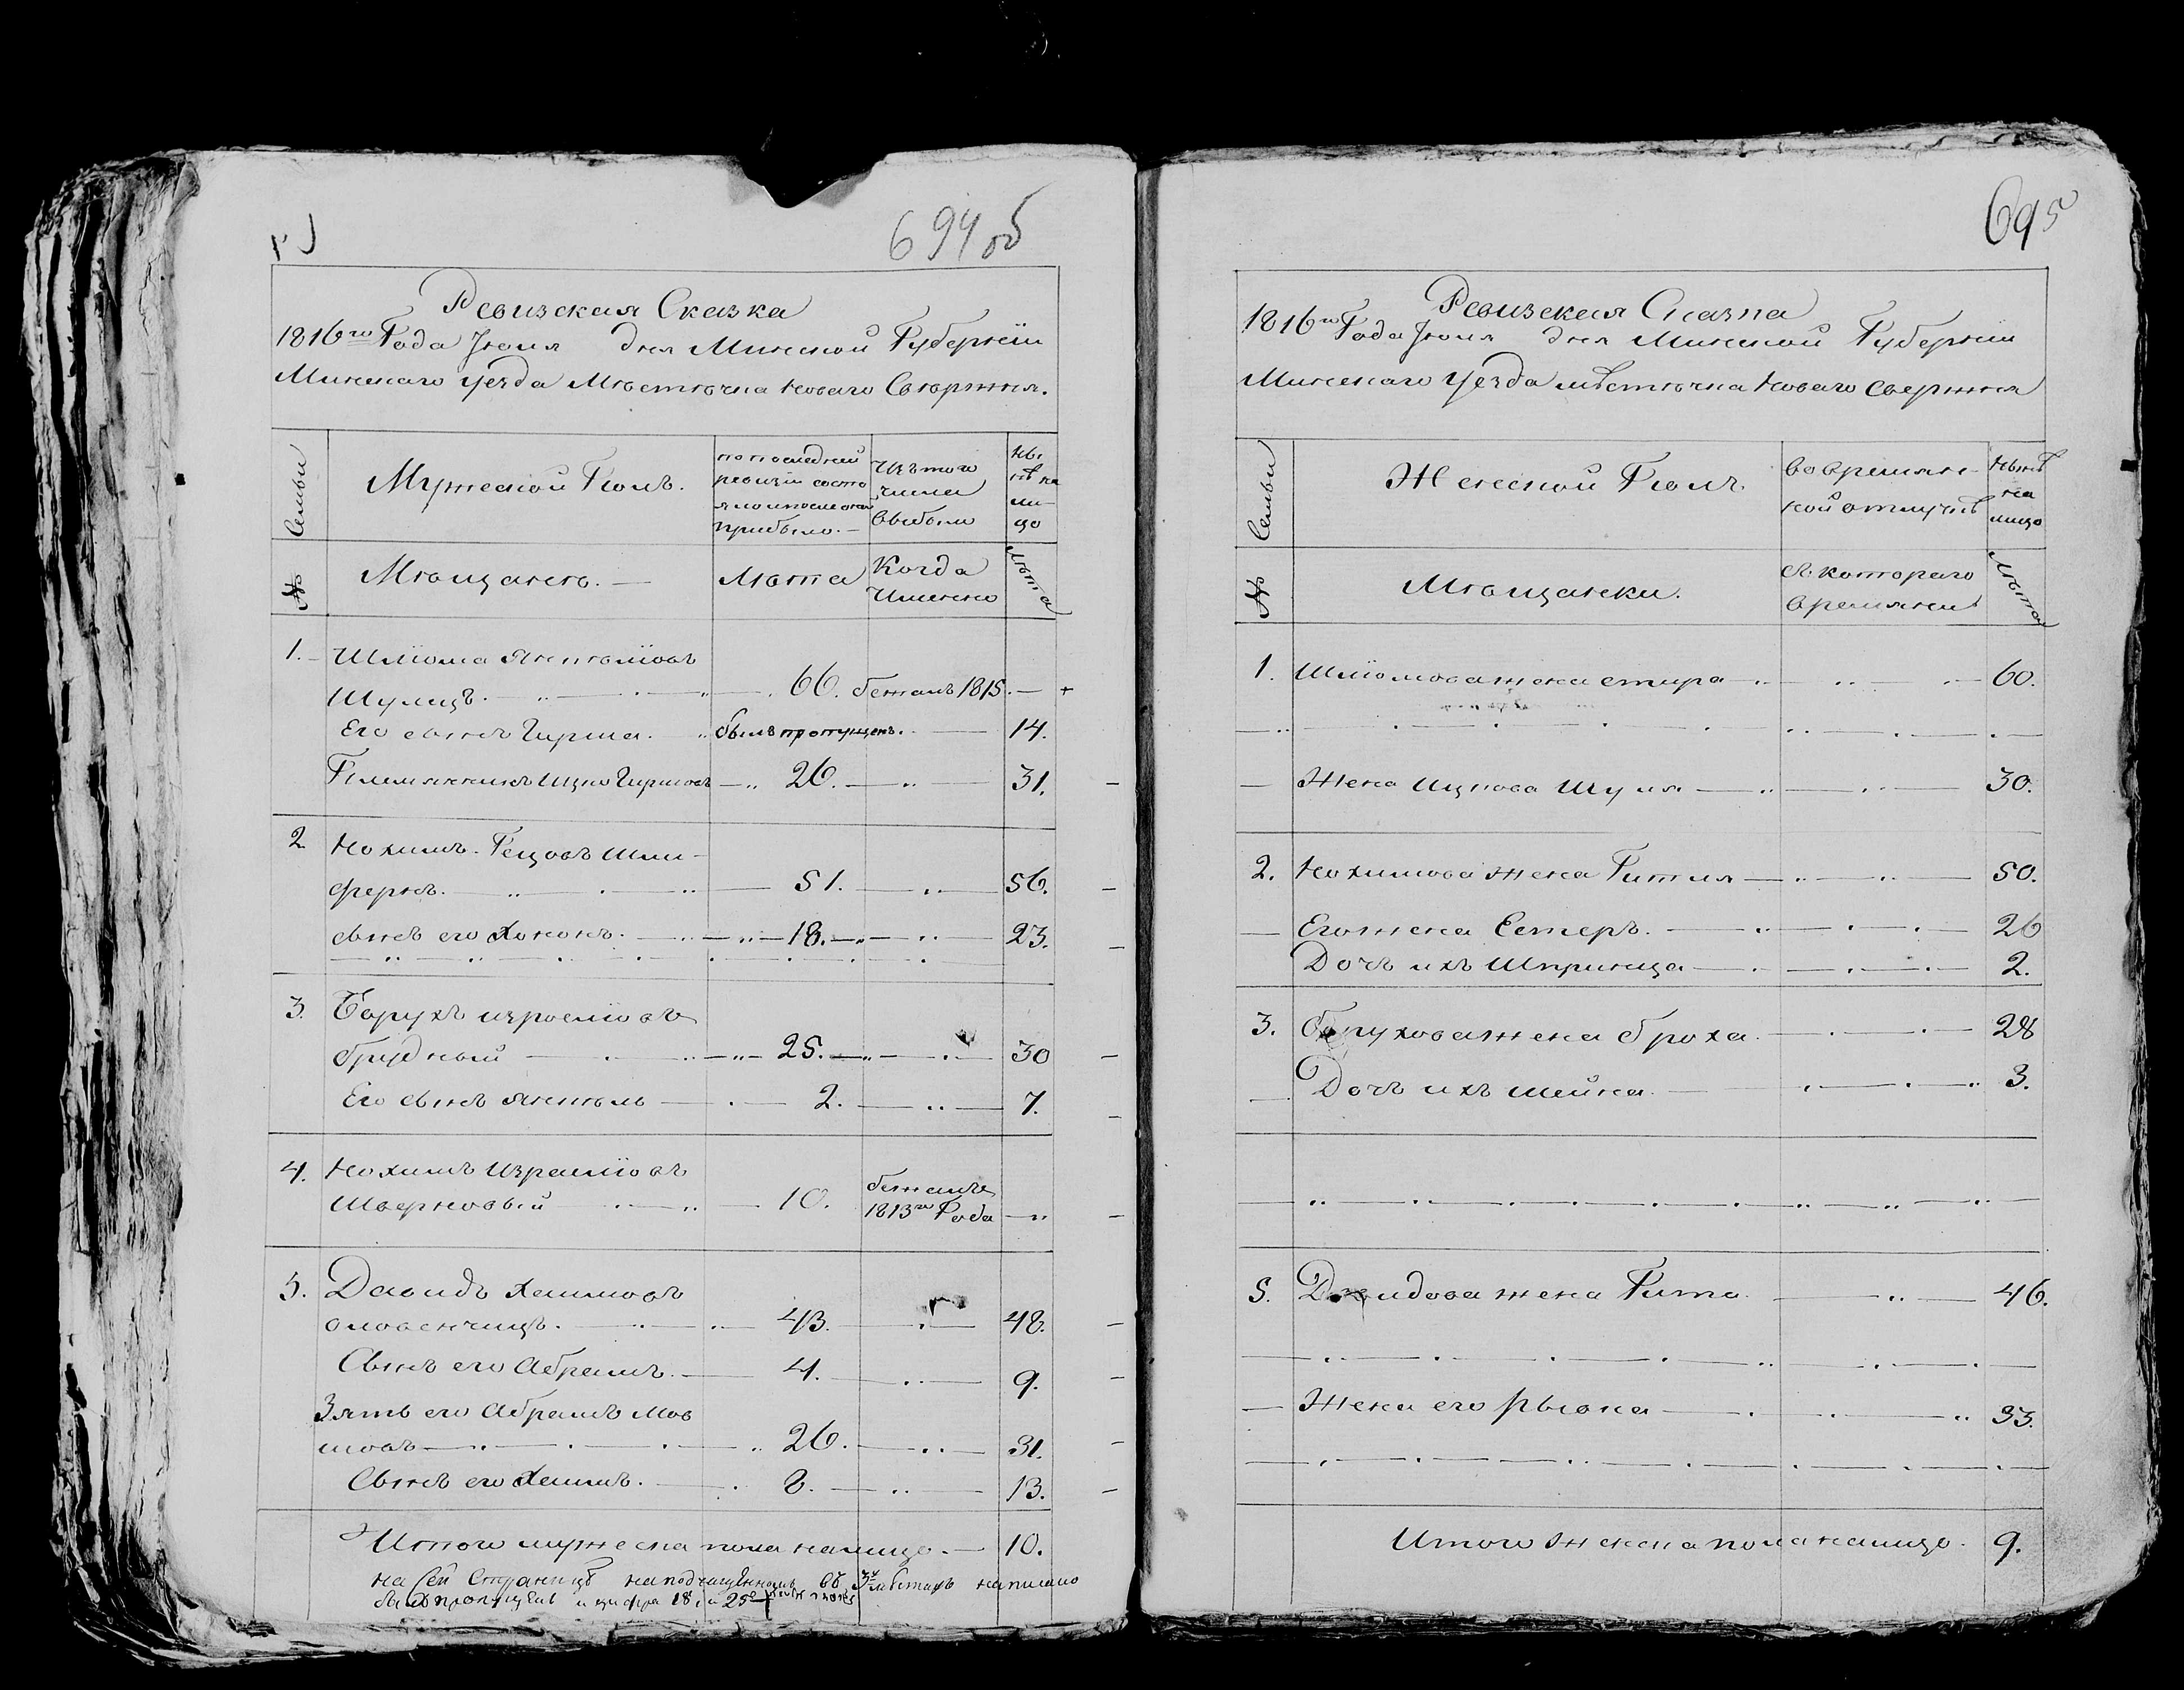 694 об
Ревизская Сказка
1816го Года Июля дня Минской Губернїи
Минскаго уезда Мѣстѣчка новаго Свѣржня.
Семьи
Мужеской Полъ.
по последней
ревизїи состо
яло и после онои
прибыло. —
Изъ того
числа
выбыло
Ны
нѣ на
ли-
цо
№
Мѣщанѣ. —
Лѣта
Когда
Именно
Лѣта
1. Шлїома Янкелїовъ
Шулицъ. 66. бежалъ 1815. — +
Его сынъ Гирша. былъ пропущенъ. 14.
Племянникъ Ицко Гиршовъ 26. 31.
2 Нохимъ Гецовъ Шли-
феркъ. 51. 56.
сынъ его Хононъ. 18. 23.
3. Борухъ изроелїовъ
брудный 25. 30
Его сынъ Янкель 2. 7.
4. Нохимъ Израилїовъ
Шверновый 10. бежалъ
1813го Года
5. Давидъ Хаимовъ
словенчицъ. 43. 48.
Сынъ его Абрамъ. 4. 9.
Зять его Абрамъ Мов
шовъ 26. 31.
Сынъ его Хаимъ. 8. 13.
Итого мужеска пола налицо. — 10.
на сей Страницѣ наподчищенномъ въ 3х мѣстахъ написано
былъ пропущенъ и цифра 18, и 25
695
Ревизская Сказка
1816го Года Июля дня Минской Губернїи
Минскаго Уезда мѣстѣчка новаго Свержня
Семьи
Женской Полъ.
во времян-
ной отлучкѣ
Нынѣ
на
лицо
№
Мѣщанки.
Съ котораго
времяни
Лѣта
1. Шлїомова жена стира 60.
— Жена Ицкова Шуля 30.
2. Нохимова жена Гитля 50.
— Его жена Естеръ. 26
Дочь ихъ Шпринца 2.
3. Борухова жена броха. 28
— Дочь ихъ шейка. 3.
5. Давидова жена Гита. 46.
— Жена его Рывка 33.
Итого женска пола налицо. 9.